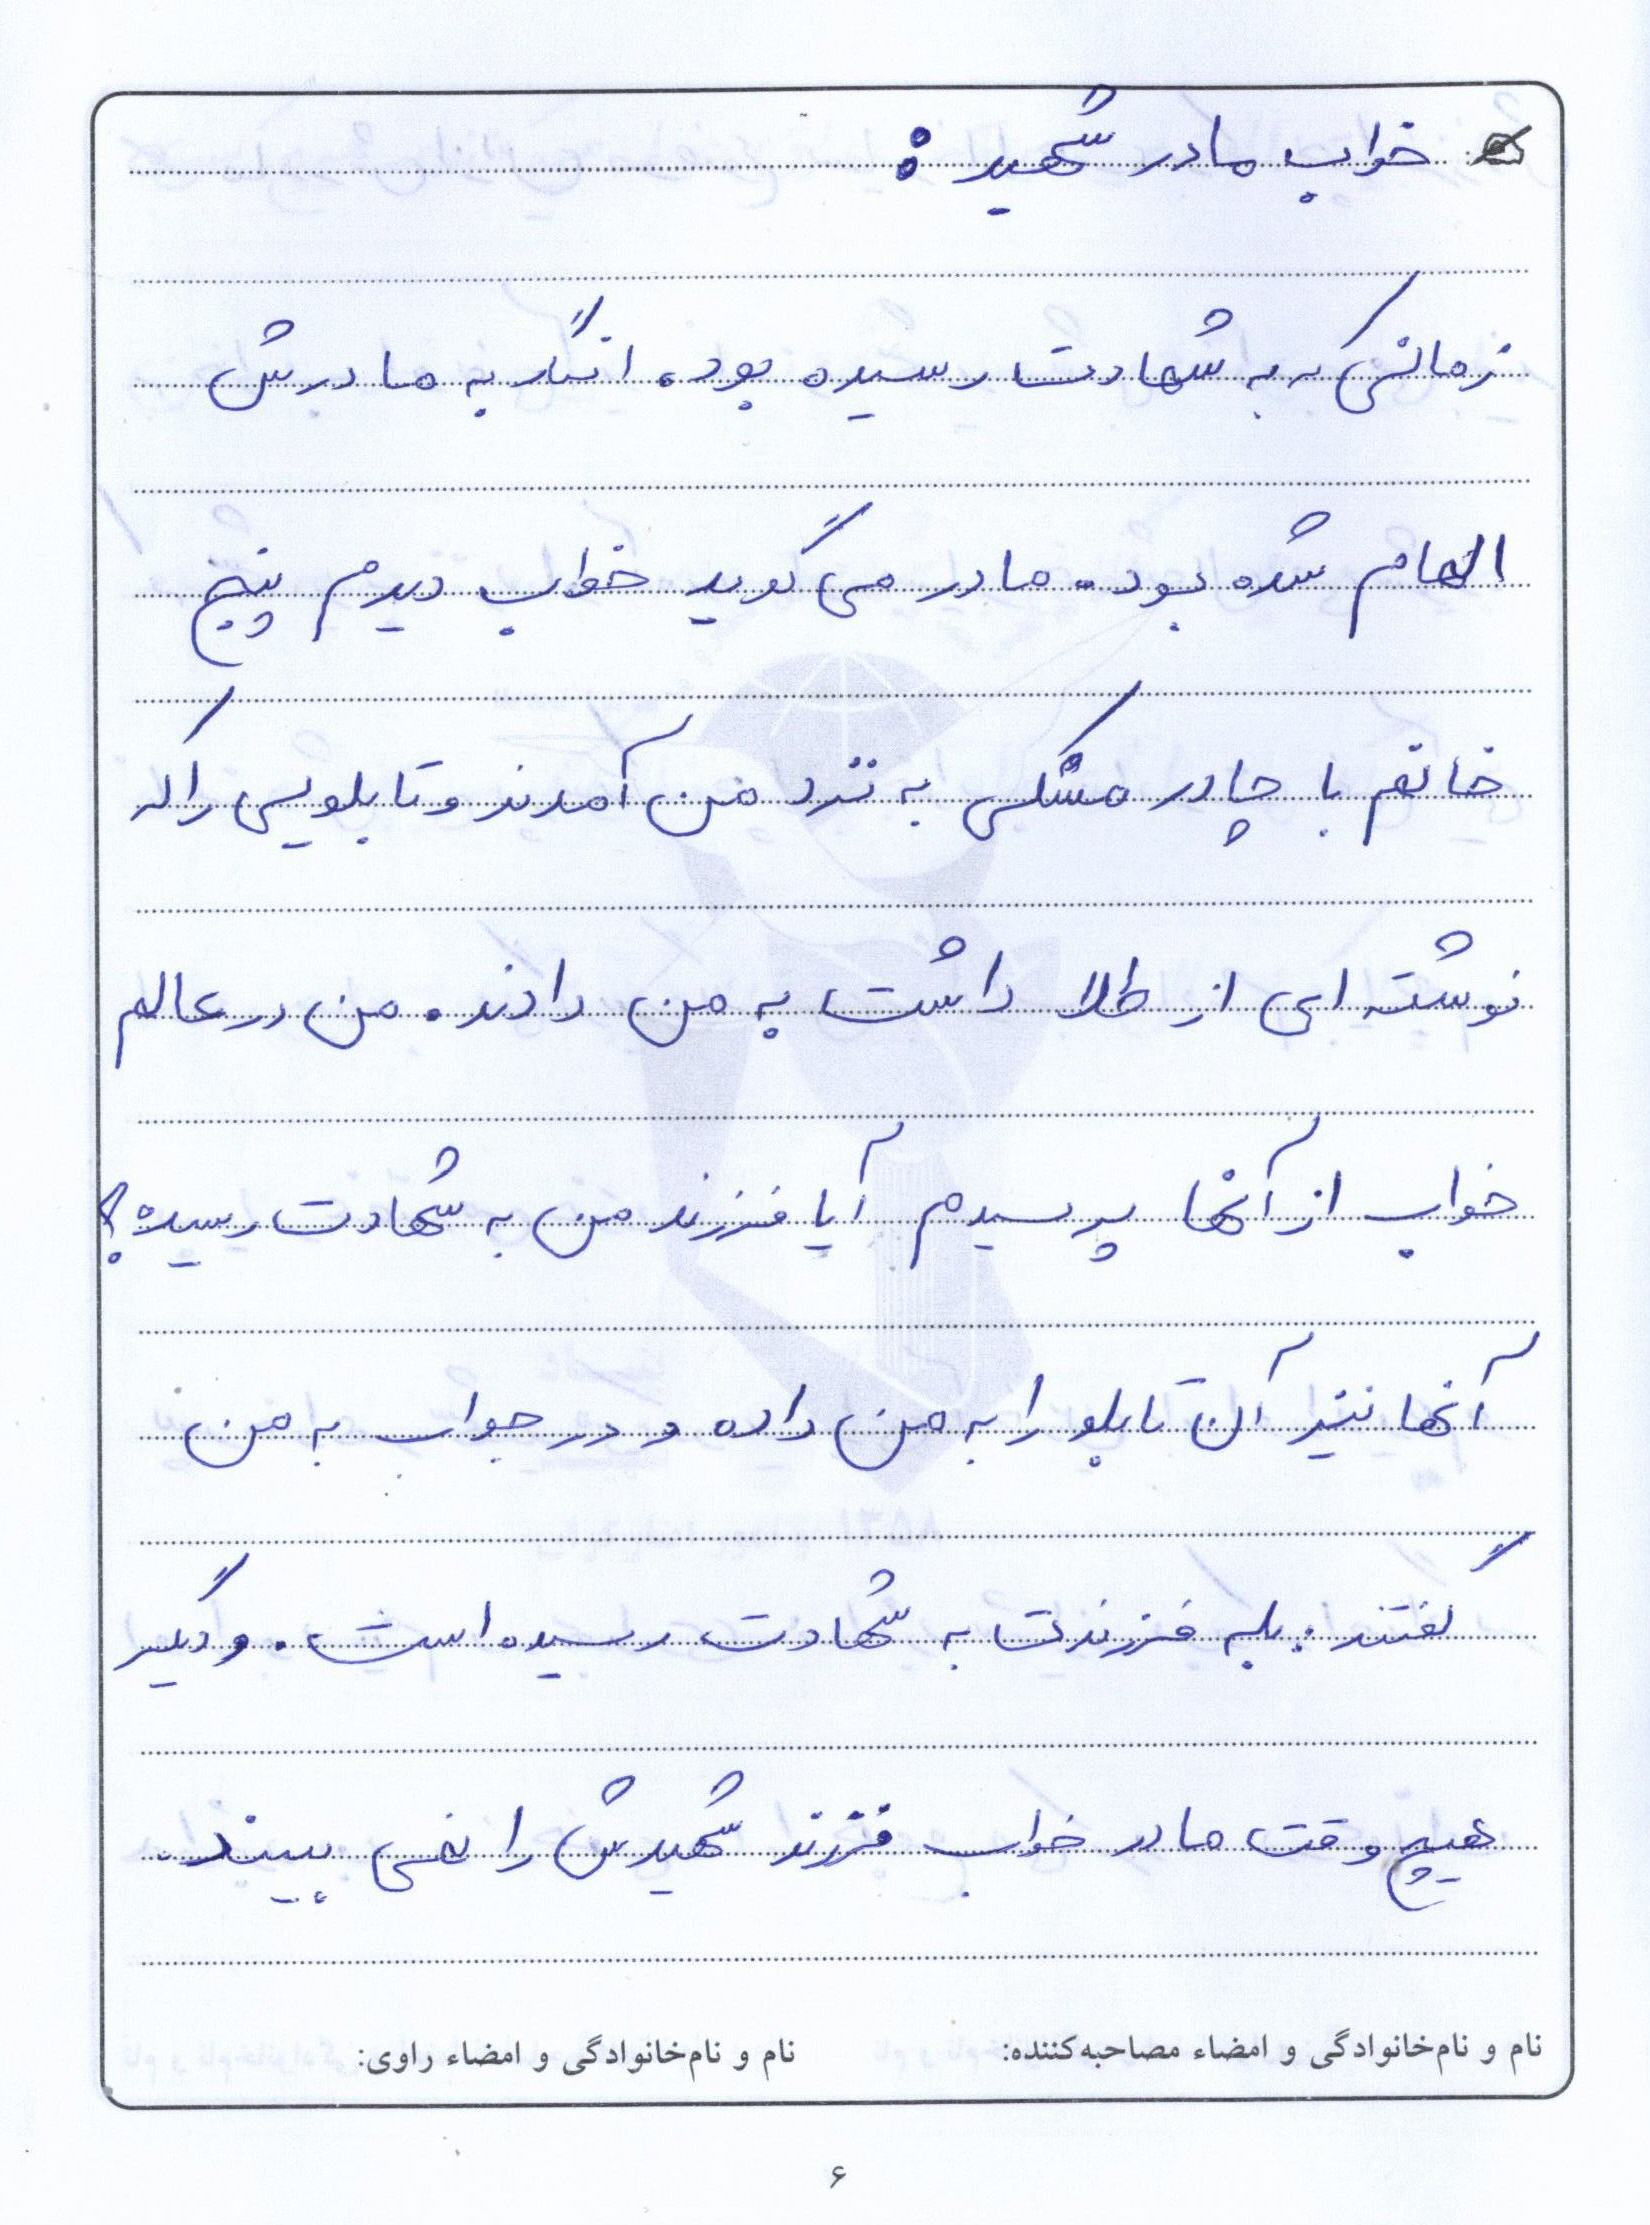 خواب مادر شهید :
زمانی که به شهادت رسیده بود. انگار به مادرش
الهام شده بود. مادر می گوید خواب دیدم پنج
خانم با چادر مشکی به نزد من آمدند و تابلویی را که
نوشته ای از طلا داشت به من دادند. من در عالم
خواب از آنها پرسیدم آیا فرزند من به شهادت رسیده؟
آنها نیز آن تابلو را به من داده و در جواب به من
گفتند: بله فرزندت به شهادت رسیده است. و دیگر
هیچ وقت مادر خواب فرزند شهیدش را نمی بیند.
نام و نام‌خانوادگی و امضاء مصاحبه‌کننده: نام و نام‌خانوادگی و امضاء راوی:
۶